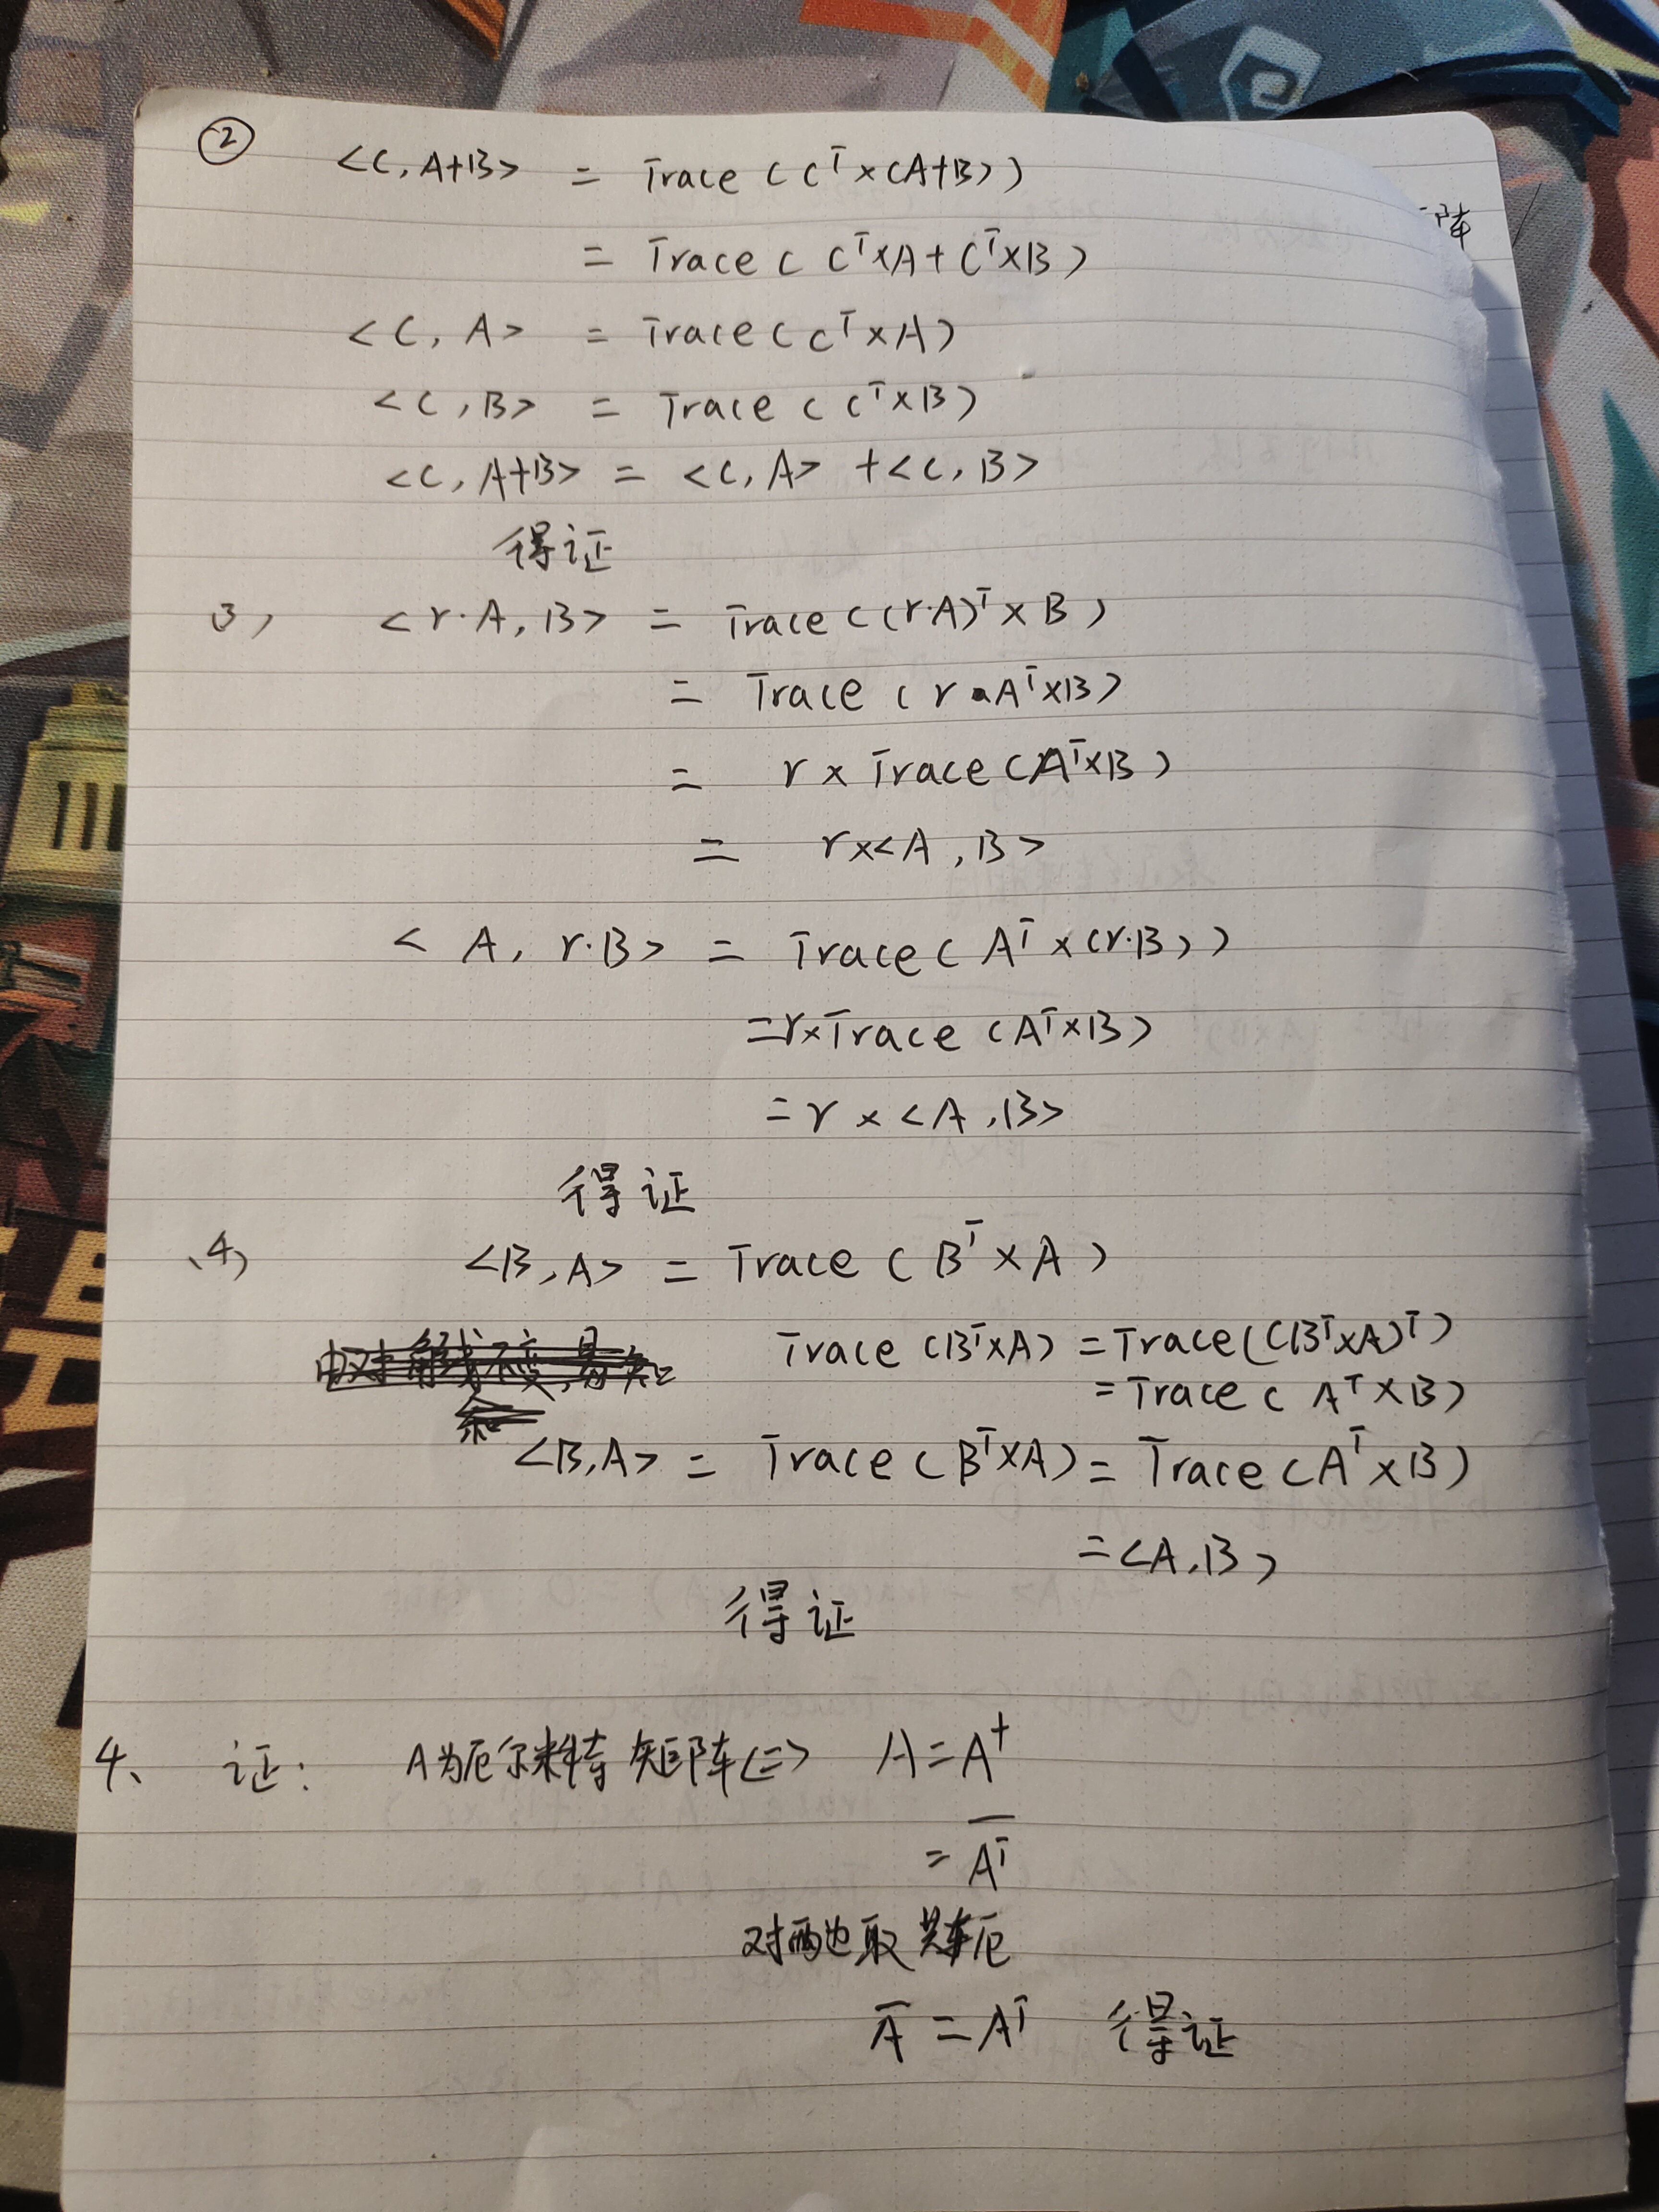 ② <C, A+B> = Trace (C^T×(A+B))
= Trace (C^T×A+C^T×B)
<C, A> = Trace (C^T×A)
<C, B> = Trace (C^T×B)
<C, A+B> = <C, A> + <C, B>
得证
3) <r·A, B> = Trace ((r·A)^T×B)
= Trace (r·A^T×B)
= r × Trace (A^T×B)
= r×<A, B>
< A, r·B> = Trace (A^T×(r·B))
=r×Trace (A^T×B)
=r × <A, B>
得证
(4) <B, A> = Trace (B^T×A)
Trace (B^T×A) = Trace((B^T×A)^T)
= Trace (A^T×B)
<B,A> = Trace (B^T×A) = Trace (A^T×B)
=<A,B>
得证
4、 证: A为厄尔米特矩阵<=> A=A^†
= \overline{A^T}
对两边取共轭
\overline{A} = A^T 得证
阵